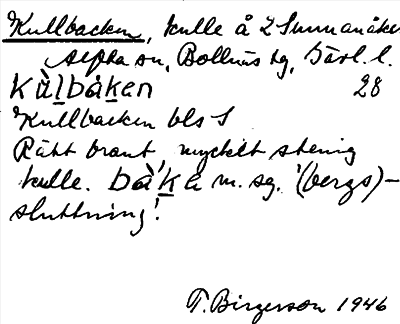 Kullbacken, kulle å 2 Sunnanåker
Alphason, Bollnäs sg, Järl. l.
Kùlbåken 28
Kullbacken bls S
Rätt brant, mycket stenig
kulle. båke m. sg. '(bergs)-
sluttning'.
T. Birgerson 1946